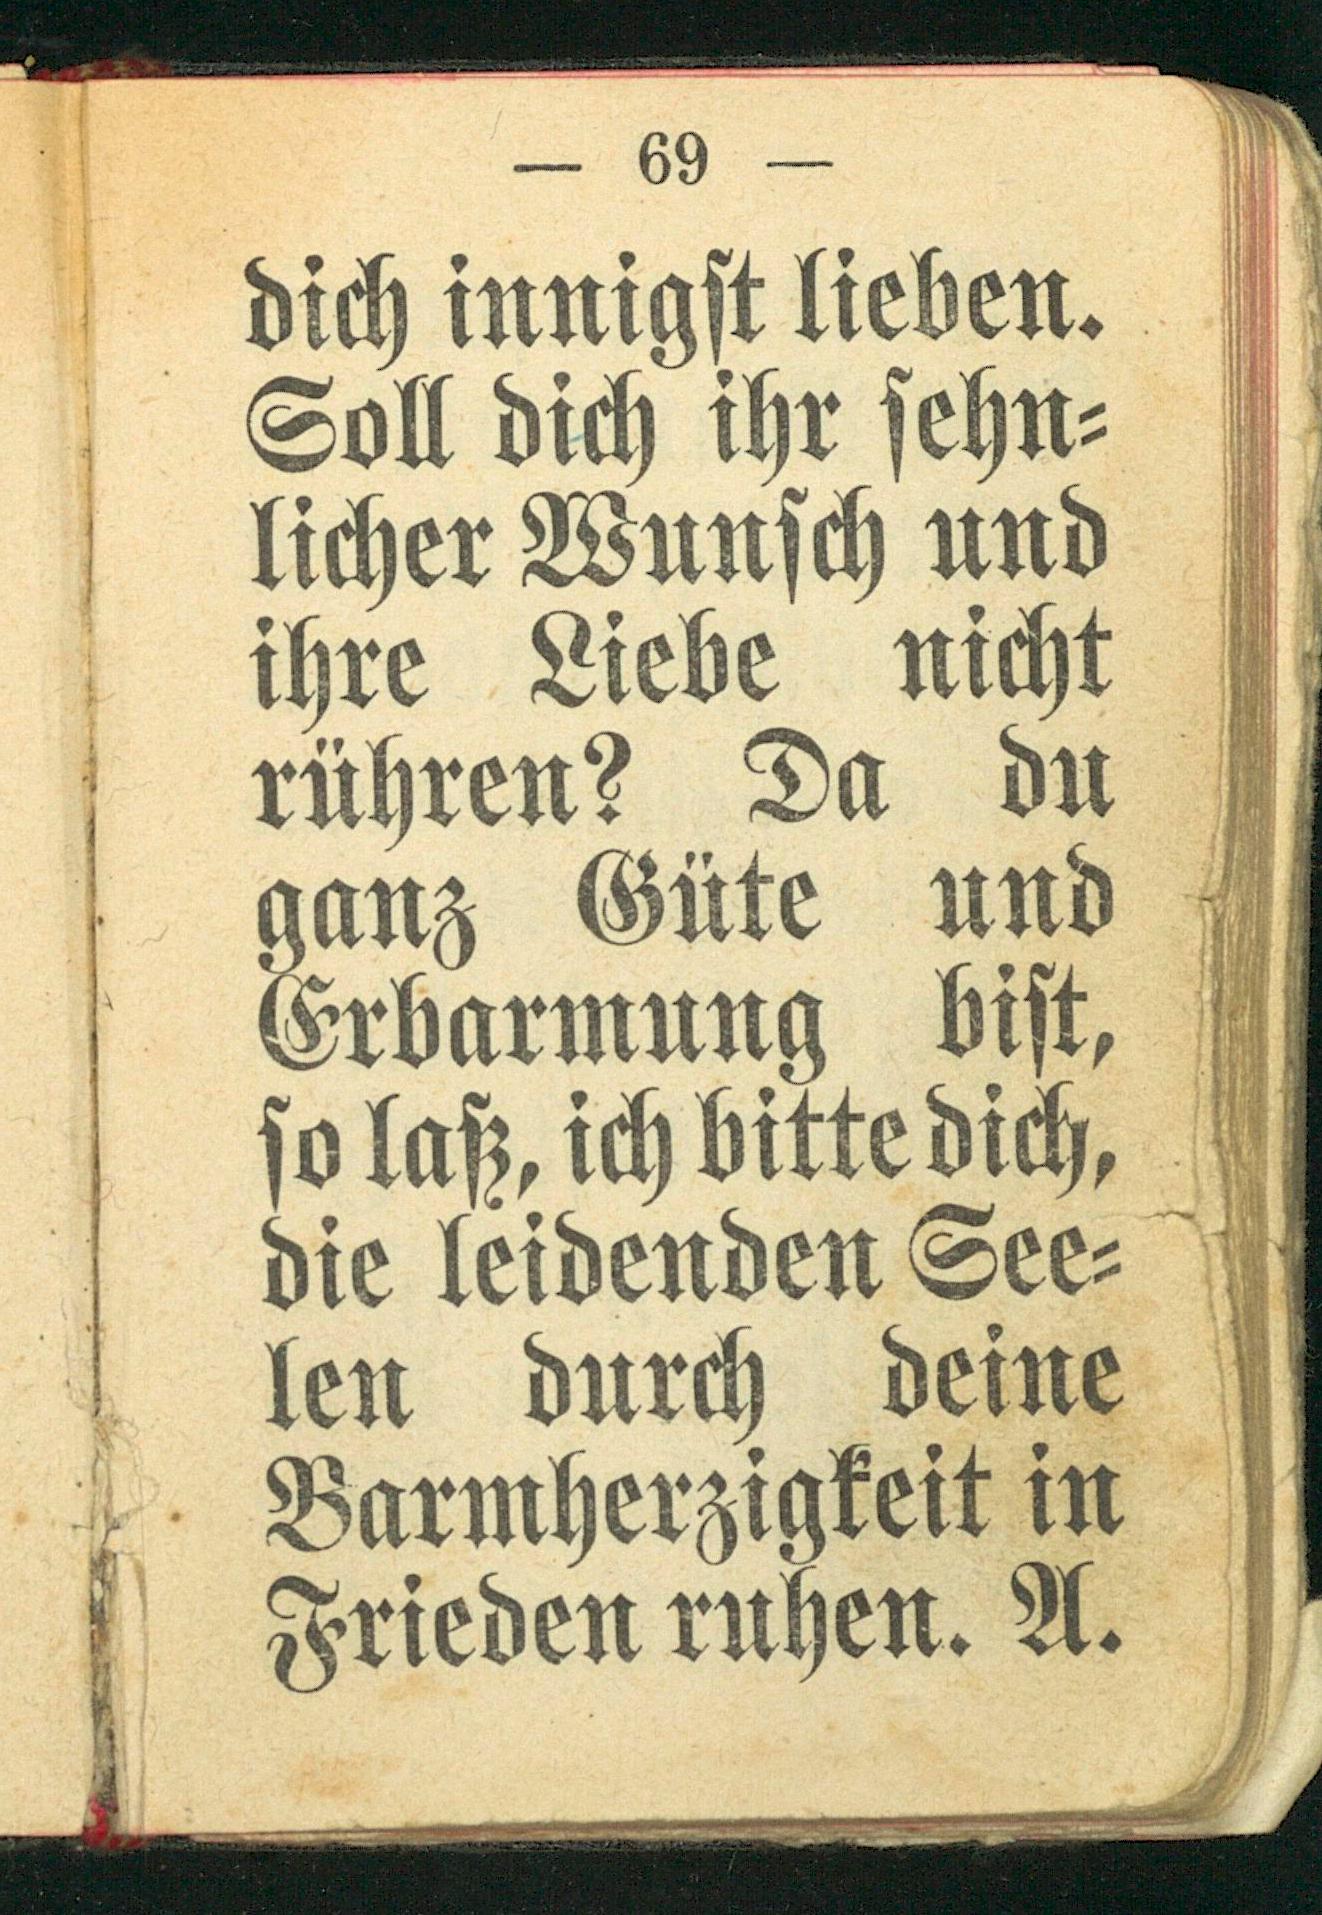 — 69 —
dich innigst lieben.
Soll dich ihr sehn-
licher Wunsch und
ihre Liebe nicht
rühren? Da du
ganz Güte und
Erbarmung bist,
so laß, ich bitte dich,
die leidenden See-
len durch deine
Barmherzigkeit in
Frieden ruhen. A.